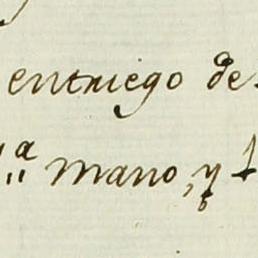 entriego de
ª mano, y